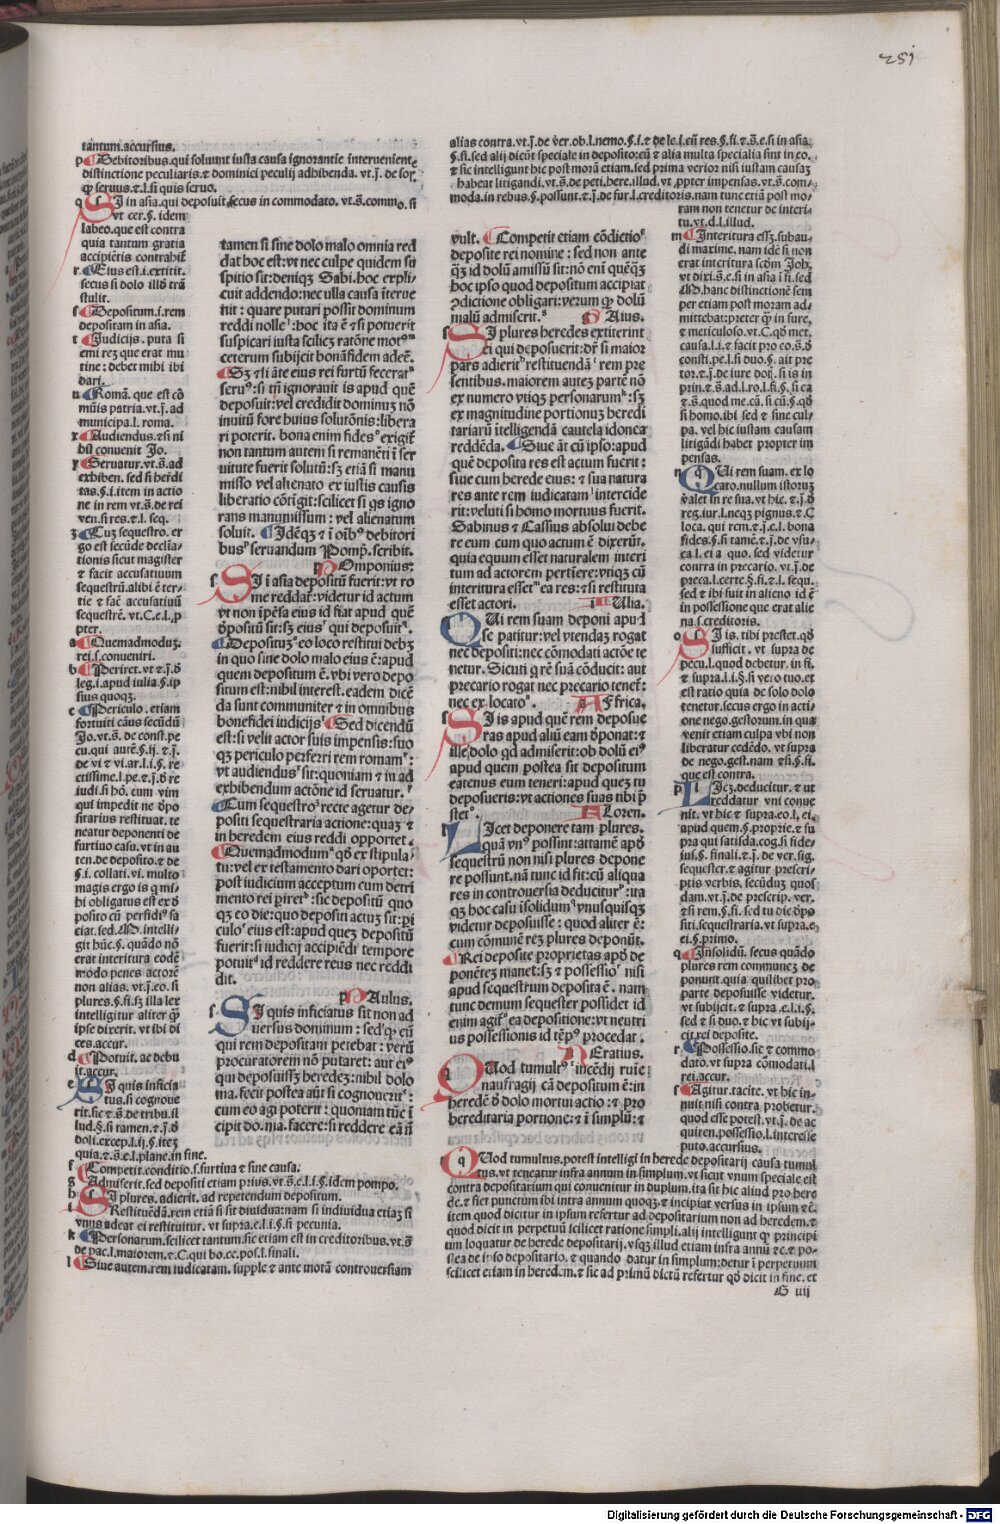 251
tantum. accursius.
Debitoribus. qui soluunt iusta causa ignorantie interuenient.
distinctione peculiaris. et dominici peculij adhibenda. vt. j. de
seruus. et. l. si quis seruo.
SI in asia. qui deposuit secus in commodato. vt. s. commo. si
vt cer. §. idem
labeo. que est contra
quia tantum gratia
accipiētis contrahit
Eius est. i. extitit.
secus si dolo
stulit.
Depositum. i. rem
depositam in asia.
Judicijs. puta si
emi rez que erat mu
tine: debet mihi ibi
dari.
Romā. que est cō
mūis patria. vt. j. ad
municipa. l. roma.
Audiendus. et si ni
hil conuenit Jo.
Seruatur. vt. s. ad
exhiben. sed si heredi
tas. §. i. item in actio
ne in rem vt. s. de rei
ven. si res. et. l. seq.
Cuz sequestro. er
go est secūde declīa-
tionis sicut magister
et facit accusatiuum
sequestrū. alibi ē ter-
tie et facī accusatiuū
sequestrē. vt. C. e. l. p
pter.
Quemadmoduz.
rei. s. conueniri.
Periret. vt. et. j. d
leg. i. apud iulia. §. ip
sius quoqz.
Periculo. etiam
fortuiti casus secūdū
Jo. vt. s. de const. pe
cu. qui autē. §. ij. et. j.
de vi et vi ar. l. i. §. re
ctissime. l. pe. et. j. d re
iudi. si hō. cum vim
qui impedit ne dpo
sitarius restituat. te
neatur deponenti de
furtiuo casu. vt in au
ten. de deposito. et de
§. i. collati. vi. multo
magis ergo is q mi-
hi obligatus est ex d
posito cū perfidis sa
ciat. sed. M. intelli-
git hūc. §. quādo nō
erat interitura eodē
modo penes actorē
non alias. vt. j. eo. si
plures. §. si. sz illa lex
intelligitur aliter q
ipse dixerit. vt ibi di
ces. accur.
Potuit. ac debu
it. accur.
SI quis inficia
tus. si cognoue
rit. sic et. s. de tribu. il
lud. §. si tamen. et. j. d
doli. excep. l. ij. §. itez
quia. et. s. e. l. plane. in fine.
Competit. conditio. s. furtiua et sine causa.
Admiserit. sed depositi etiam prius. vt. s. e. l. i. §. idem pompo.
SI plures. adierit. ad repetendum depositum.
Restituēdā. rem etiā si sit diuidua: nam si indiuidua etiaz si
vnus adeat ei restituitur. vt supra. e. l. i. §. si pecunia.
Personarum. scilicet tantum. sic etiam est in creditoribus. vt. s
de pac. l. maiorem. et. C. qui bo. ce. pos. l. finali.
Siue autem. rem iudicatam. supple et ante motā controuersiam
tamen si sine dolo malo omnia red
dat hoc est: vt nec culpe quidem su
spitio sit: deniqz Sabi. hoc expli-
cuit addendo: nec vlla causa īterue
nit: quare putari possit dominum
reddi nolle: hoc ita ē et si potuerit
suspicari iusta scilicz ratōne motus
ceterum subijcit bonāfidem adeē.
Sz et si āte eius rei furtū fecerat
seruus: si tn ignorauit is apud quē
deposuit: vel credidit dominuz nō
inuitū fore huius solutōnis: libera
ri poterit. bona enim fides exigit
non tantum autem si remanēti ī ser
uitute fuerit solutū: sz etiā si manu
misso vel alienato ex iustis causis
liberatio cōtigit: scilicet si qs igno
rans manumissum: vel alienatum
soluit. Idēqz et ī oībus debitori
bus seruandum Pomp. scribit.
Pomponius:
SI ī asia depositū fuerit: vt ro
me reddat: videtur id actum
vt non īpēsa eius id fiat apud quē
dpositū sit: sz eius qui deposuit.
Depositum eo loco restitui debz
in quo sine dolo malo eius ē: apud
quem depositum ē. vbi vero depo
situm est: nihil interest. eadem dicē
da sunt communiter et in omnibus
bonefidei iudicijs Sed dicendū
est: si velit actor suis impensis: suo
qz periculo perferri rem romam:
vt audiendus sit: quoniam et in ad
exhibendum actōne id seruatur.
Cum sequestro recte agetur de-
positi sequestraria actione: quaz et
in heredem eius reddi oportet.
Quemadmodum qd ex stipula-
tu: vel ex testamento dari oportet:
post iudicium acceptum cum detri
mento rei piret: sic depositū quo
qz eo die: quo depositi actuz sit: pi
culo eius est: apud quez depositū
fuerit: si iudicij accipiēdi tempore
potuit id reddere reus nec reddi
dit.
Paulus.
SI quis inficiatus sit non ad
uersus dominum: sed qz eū
qui rem depositam petebat: verū
procuratorem nō putaret: aut eius
qui deposuissz heredez: nihil dolo
ma. fecit postea aūt si cognouerit:
cum eo agi poterit: quoniam tūc ī
cipit do. ma. facere: si reddere eā ñ
alias contra. vt. j. de ver. ob. l. nemo. §. i. et de le. i. cū res. §. si. et. s. e. si in asia:
§. si. sed alij dicūt speciale in deposito: cū et alia multa specialia sint in eo.
et sic intelligunt hic post morā etiam. sed prima verior nisi iustam causaz
habeat litigandi. vt. s. de peti. here. illud. vt ppter impensas. vt. s. com-
moda. in rebus. §. possunt. et. j. de fur. l. creditoris. nam tunc etiā post mo-
ram non tenetur de interi-
tu. vt. d. l. illud.
vult. Competit etiam cōdictio
deposite rei nomine: sed non ante
qz id dolū amissū sit: nō enī quēqz
hoc ipso quod depositum accipiat
condictione obligari: verum qz dolū
malū admiserit.
Gaius.
SI plures heredes extiterint
ei qui deposuerit: dr si maior
pars adierit restituendā rem pre
sentibus. maiorem autez partē nō
ex numero vtiqz personarum: sz
ex magnitudine portionuz heredi
tariarū ītelligendā cautela idonea
reddēda. Siue āt cū ipso: apud
quē deposita res est actum fuerit:
siue cum herede eius: et sua natura
res ante rem iudicatam intercide
rit: veluti si homo mortuus fuerit.
Sabinus et Cassius absolui debe
re eum cum quo actum ē dixerūt.
quia equum esset naturalem interi
tum ad actorem pertīere: vtiqz cū
interitura esset ea res: et si restituta
esset actori. Iulia.
QUi rem suam deponi apud
se patitur: vel vtendaz rogat
nec depositi: nec cōmodati actōe te
netur. Sicuti q rē suā cōducit: aut
precario rogat nec precario tenet:
nec ex locato. Affrica.
SI is apud quē rem deposue
ras apud aliū eam dponat: et
ille dolo qd admiserit: ob dolū eius
apud quem postea sit depositum
eatenus eum teneri: apud quez tu
deposueris: vt actiones suas tibi p
stet. Floren.
LIcet deponere tam plures.
quā vnus possint: attamē apd
sequestrū non nisi plures depone
re possunt. nā tunc id fit: cū aliqua
res in controuersia deducitur: ita
qz hoc casu īsolidum vnusquisqz
videtur deposuisse: quod aliter ē:
cum cōmunē rez plures deponūt.
Rei deposite proprietas apd de
ponētez manet: sz et possessio nisi
apud sequestrum deposita ē. nam
tunc demum sequester possidet id
enim agit ea depositione: vt neutri
us possessionis id tēps procedat.
Neratius.
QUod tumultus incēdij ruie
naufragij cā depositum ē: in
heredē d dolo mortui actio: ē pro
hereditaria portione: et ī simplū: et
Interitura essz. subau-
di maxime. nam idē si non
erat interitura scdm Joh.
vt dixi. s. e. si in asia ī fi. sed
M. hanc distinctionē sem
per etiam post moram ad-
mittebat: preter q in fure.
et meticuloso. vt. C. qd met.
causa. l. i. et facit pro eo. s. d
consti. pe. l. si duo. §. ait pre
tor. et. j. de iure doti. si is in
prin. et. s. ad. l. ro. l. si. §. si ca
et. s. quod me. cā. si cū. §. qd
si homo. ibi sed et sine cul-
pa. vel hic iustam causam
litigādi habet propter im
pensas.
QUi rem suam. ex lo
cato. nullum istoruz
valet in re sua. vt hic. et. j. d
reg. iur. l. neqz pignus. et. C
loca. qui rem. et. j. e. l. bona
fides. §. si tamē. et. j. de vsu-
ca. l. ei a quo. sed videtur
contra in precario. vt. j. de
preca. l. certe. §. si. et. l. sequ.
sed et ibi fuit in alieno id ē
in possessione que erat alie
na. s. creditoris.
SI is. tibi prestet. qd
sufficit. vt supra de
pecu. l. quod debetur. in fi.
et supra. l. i. §. si vero tuo. et
est ratio quia de solo dolo
tenetur. secus ergo in actio
one nego. gestorum. in qua
venit etiam culpa vbi non
liberatur cedēdo. vt supra
de nego. gest. nam et si. §. si.
que est contra.
LIcz. deducitur. et ut
reddatur vni conue
nit. vt hic et supra. eo. l. ei.
apud quem. §. proprie. et su
pra qui satisda. cog. si fide-
ius. §. finali. et. j. de ver. sig.
sequester. et agitur prescri-
ptis verbis. secūduz quos
dam. vt. j. de prescrip. ver.
et si rem. §. si. sed tu dic dpo
siti. sequestraria. vt supra. e
ei. §. primo.
Insolidū. secus quādo
plures rem communez de
ponunt. quia quilibet pro
parte deposuisse videtur.
vt subijcit. et supra. e. l. i. §.
sed et si duo. et hic vt subij-
cit rei deposite.
Possessio. sic et commo
dato. vt supra cōmodati. l.
rei. accur.
Agitur. tacite. vt hic in-
nuit nisi contra probetur.
quod esse potest. vt. j. de ac
quiren. possessio. l. interesse
puto. accursius.
QUod tumultus. potest intelligi in herede depositarij causa tumul
tus. vt teneatur infra annum in simplum. vt sicut vnum speciale est
contra depositarium qui conuenitur in duplum. ita sit hic aliud pro here
de. et siet punctum ibi intra annum quoqz. et incipiat versus in ipsum et c.
item quod dicitur in ipsum refertur ad depositarium non ad heredem. et
quod dicit in perpetuū scilicet ratione simpli. alij intelligunt q principi
um loquatur de herede depositarij. vsqz illud etiam infra annū et c. et po-
stea de ipso depositario. et quando datur in simplum: detur ī perpetuum
scilicet etiam in heredem. et sic ad primū dictū refertur qd dicit in fine. et
G iiij
Digitalisierung gefördert durch die Deutsche Forschungsgemeinschaft - DFG